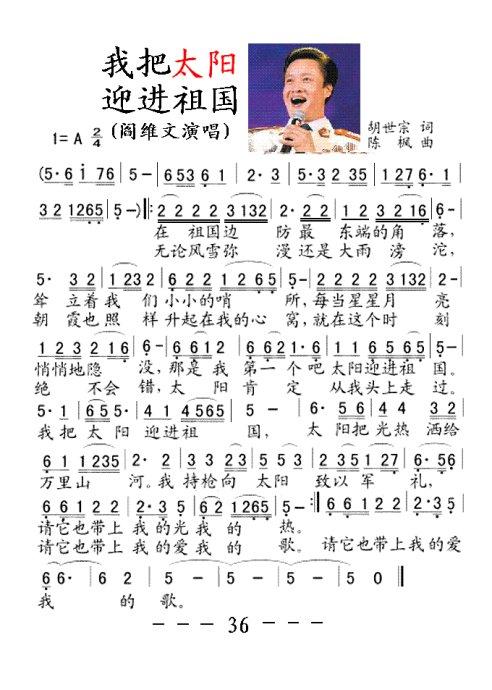 我把太阳
迎进祖国
1=A 2/4
(阎维文演唱)
胡世宗 词
陈 枫 曲
(5·6 i 76 | 5- | 6535 6 1 | 2·3 | 5·6 3235 | 127 6·1 |
3 2 1265 | 5-) |: 2 2 2 2 | 2 3132 | 2·2 | 1 2 2 | 3 2 3216 | 6- |
在 祖国边 防最 东端的角 落,
无论风雪弥 漫还是大雨 滂 沱,
耸 立着我 们小小的哨 所,每当星星月 亮
朝 霞也照 样升起在我的心 窝,就在这个时 刻
1 2 3 2 3 2 16 | 6·1 2 2 | 5·3 2 1 2 | 112 3565 | 5- |
悄悄地隐 没,那是我 第一个吧太阳迎进祖 国。
绝 不会 错,太 阳 肯 定 从我头上走 过。
5·1 | 6 5 5· | 4 1 4565 | 5- | 5- | 6· 56 | 4 4 | 3 2 |
我 把 太 阳 迎进祖 国, 太 阳把光热 洒给
6 1 1235 | 2· 3 | 2 3 2 3 | 5 5 3 | 2 2 3 1 2 | 6·56 |
万里山 河。我 持枪向 太阳 致以 军 礼,
6 6 1 2 2 | 2·3 5 | 6 2 1265 | 5- :| 6 6 1 2 2 | 2·3 5 |
请它也带上 我 的光我 的 热。
请它也带上 我 的爱我 的 歌。 请它也带上 我 的爱
6 6· | 6 2 | 5 - | 5 - | 5 - | 5 0 ‖
我 的 歌。
- - - 36 - - - -